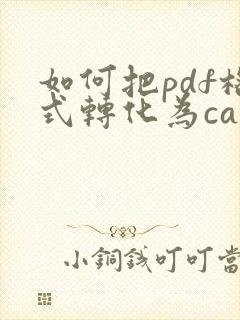 如何把pdf格
式轉化為ca
小銅錢叮叮當